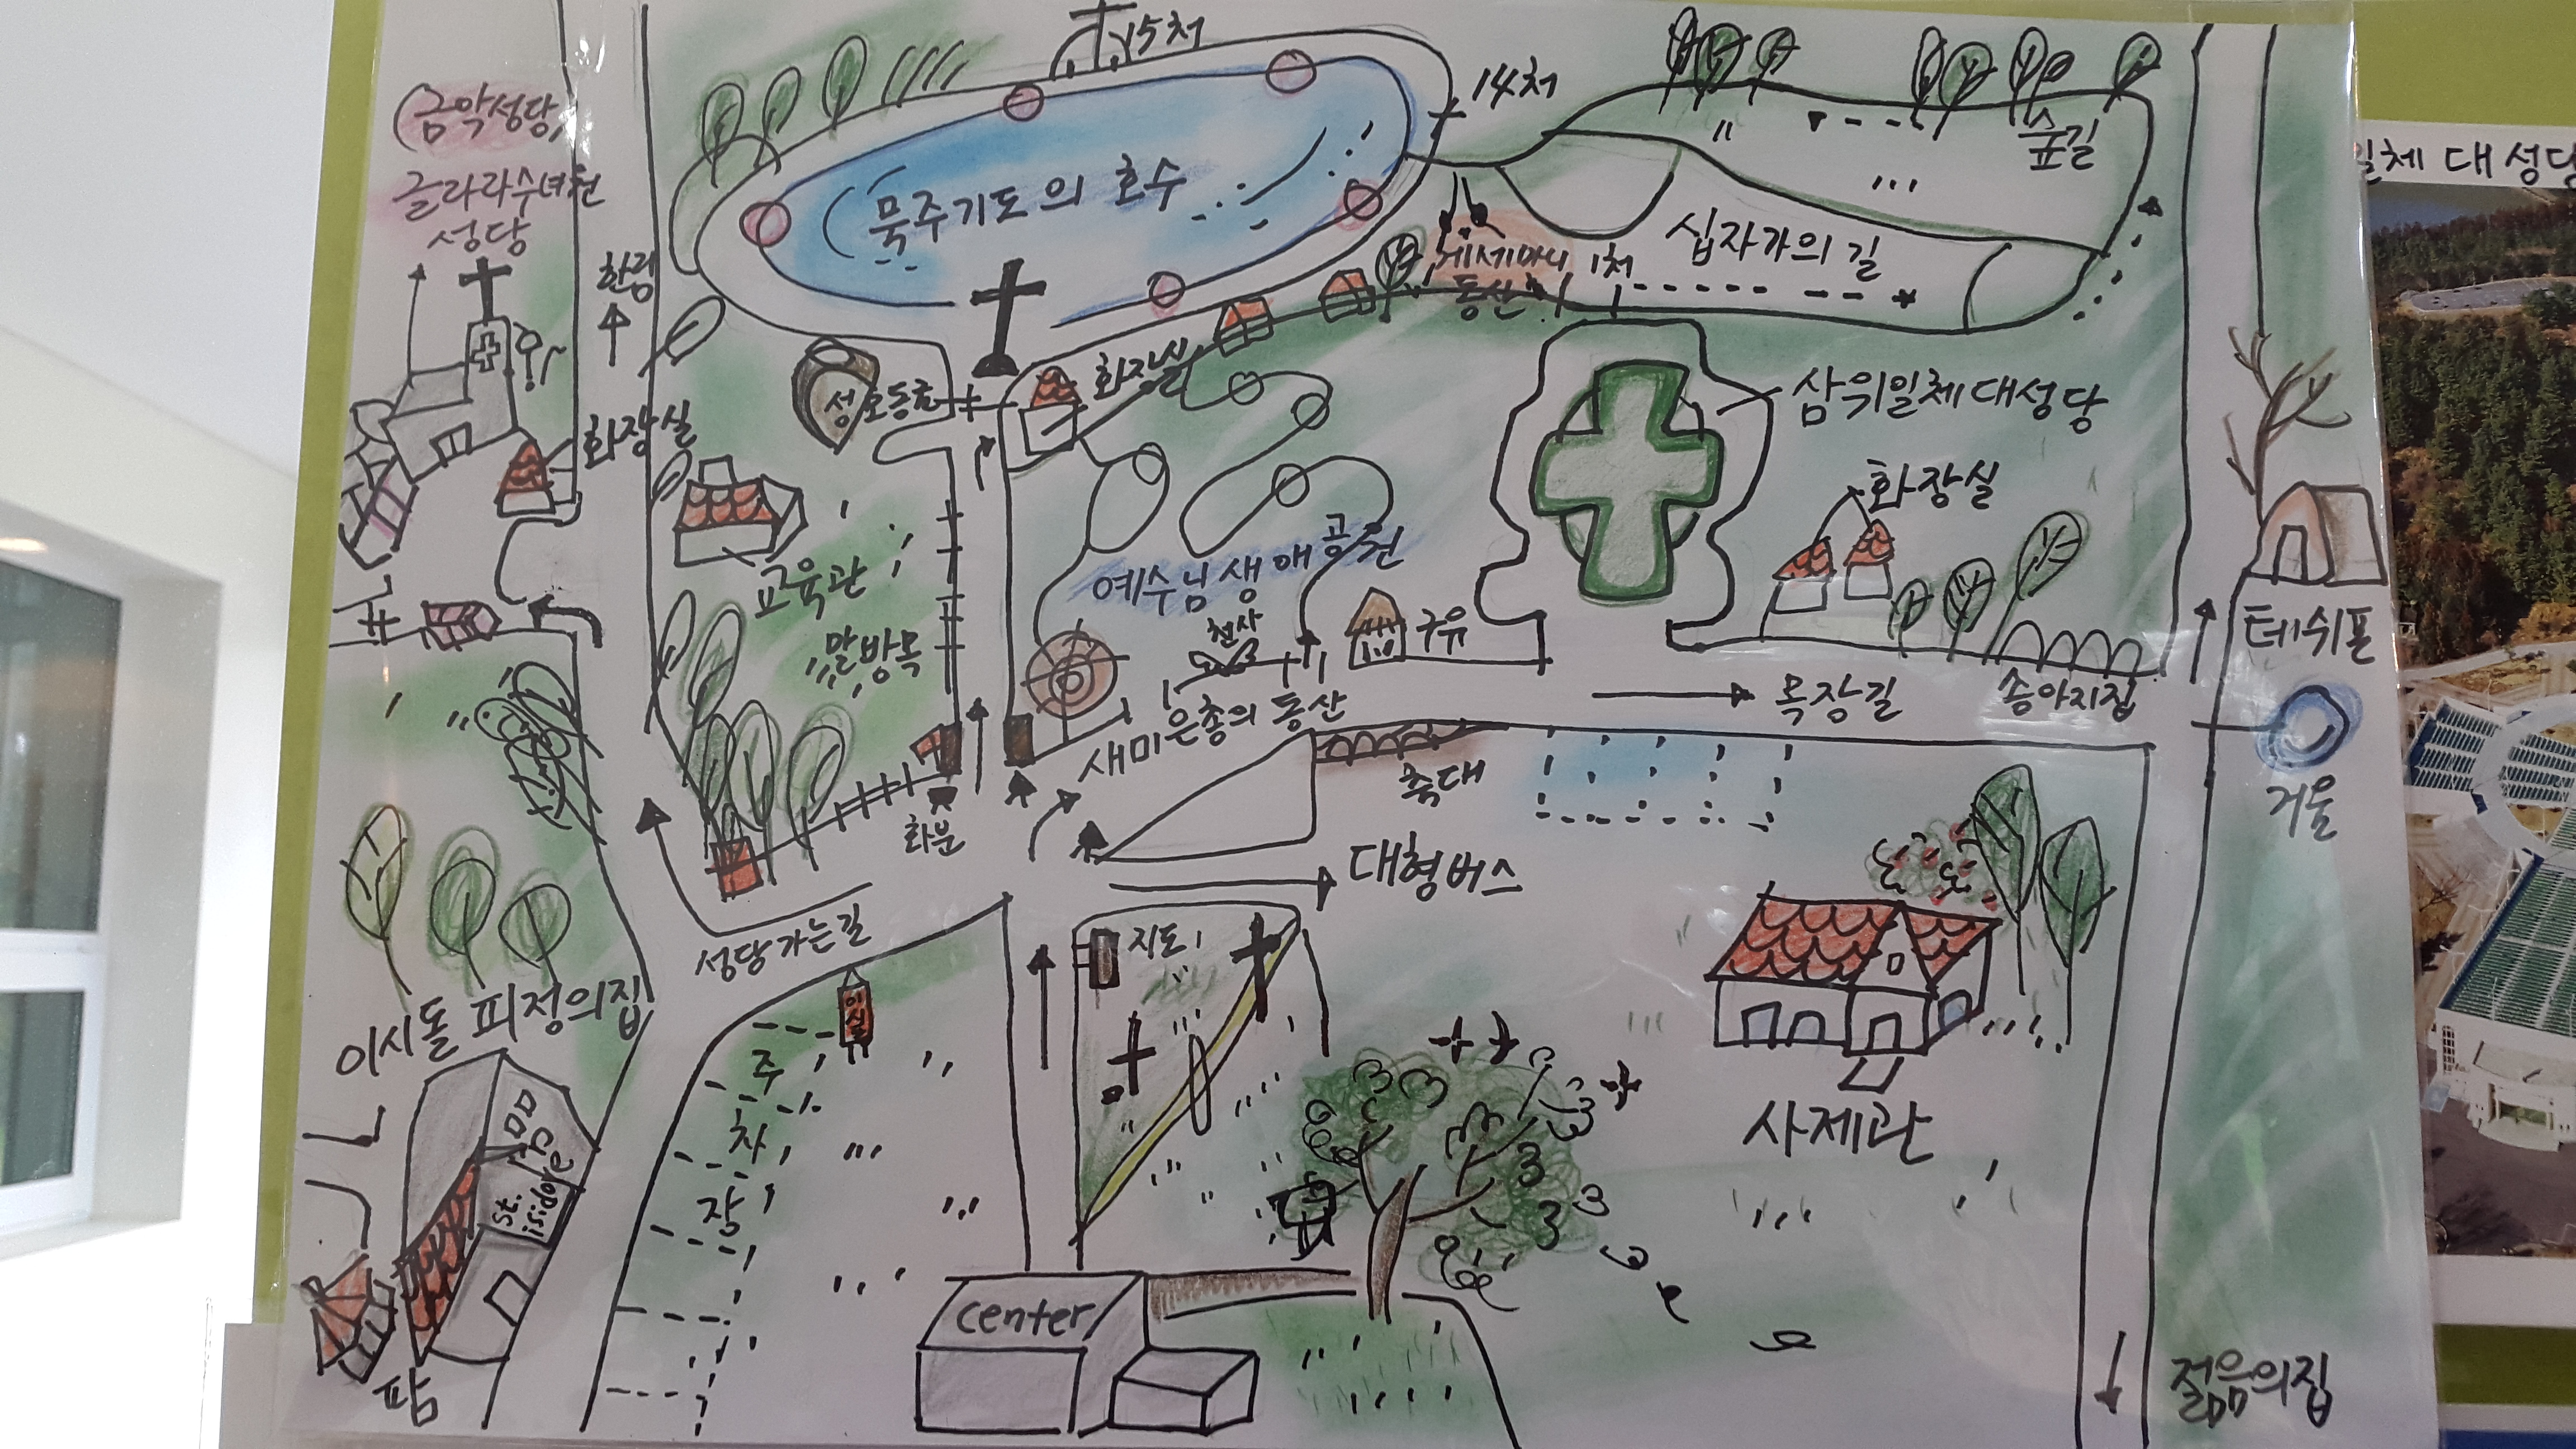 15처
14처
(금악성당)
글라라수녀원
성당
묵주기도의 호수
숲길
십자가의 길
겟세마니
동산
1처
한림
화장실
성호동굴
화장실
삼위일체대성당
화장실
교육관
말방목
예수님생애공원
천사
구유
새미은총의 동산
목장길
송아지집
테쉬폰
거울
축대
화분
대형버스
성당가는길
지도
이시돌 피정의집
주
차
장
사제관
st.
isidore
center
팜
젊음의집
일체 대성당